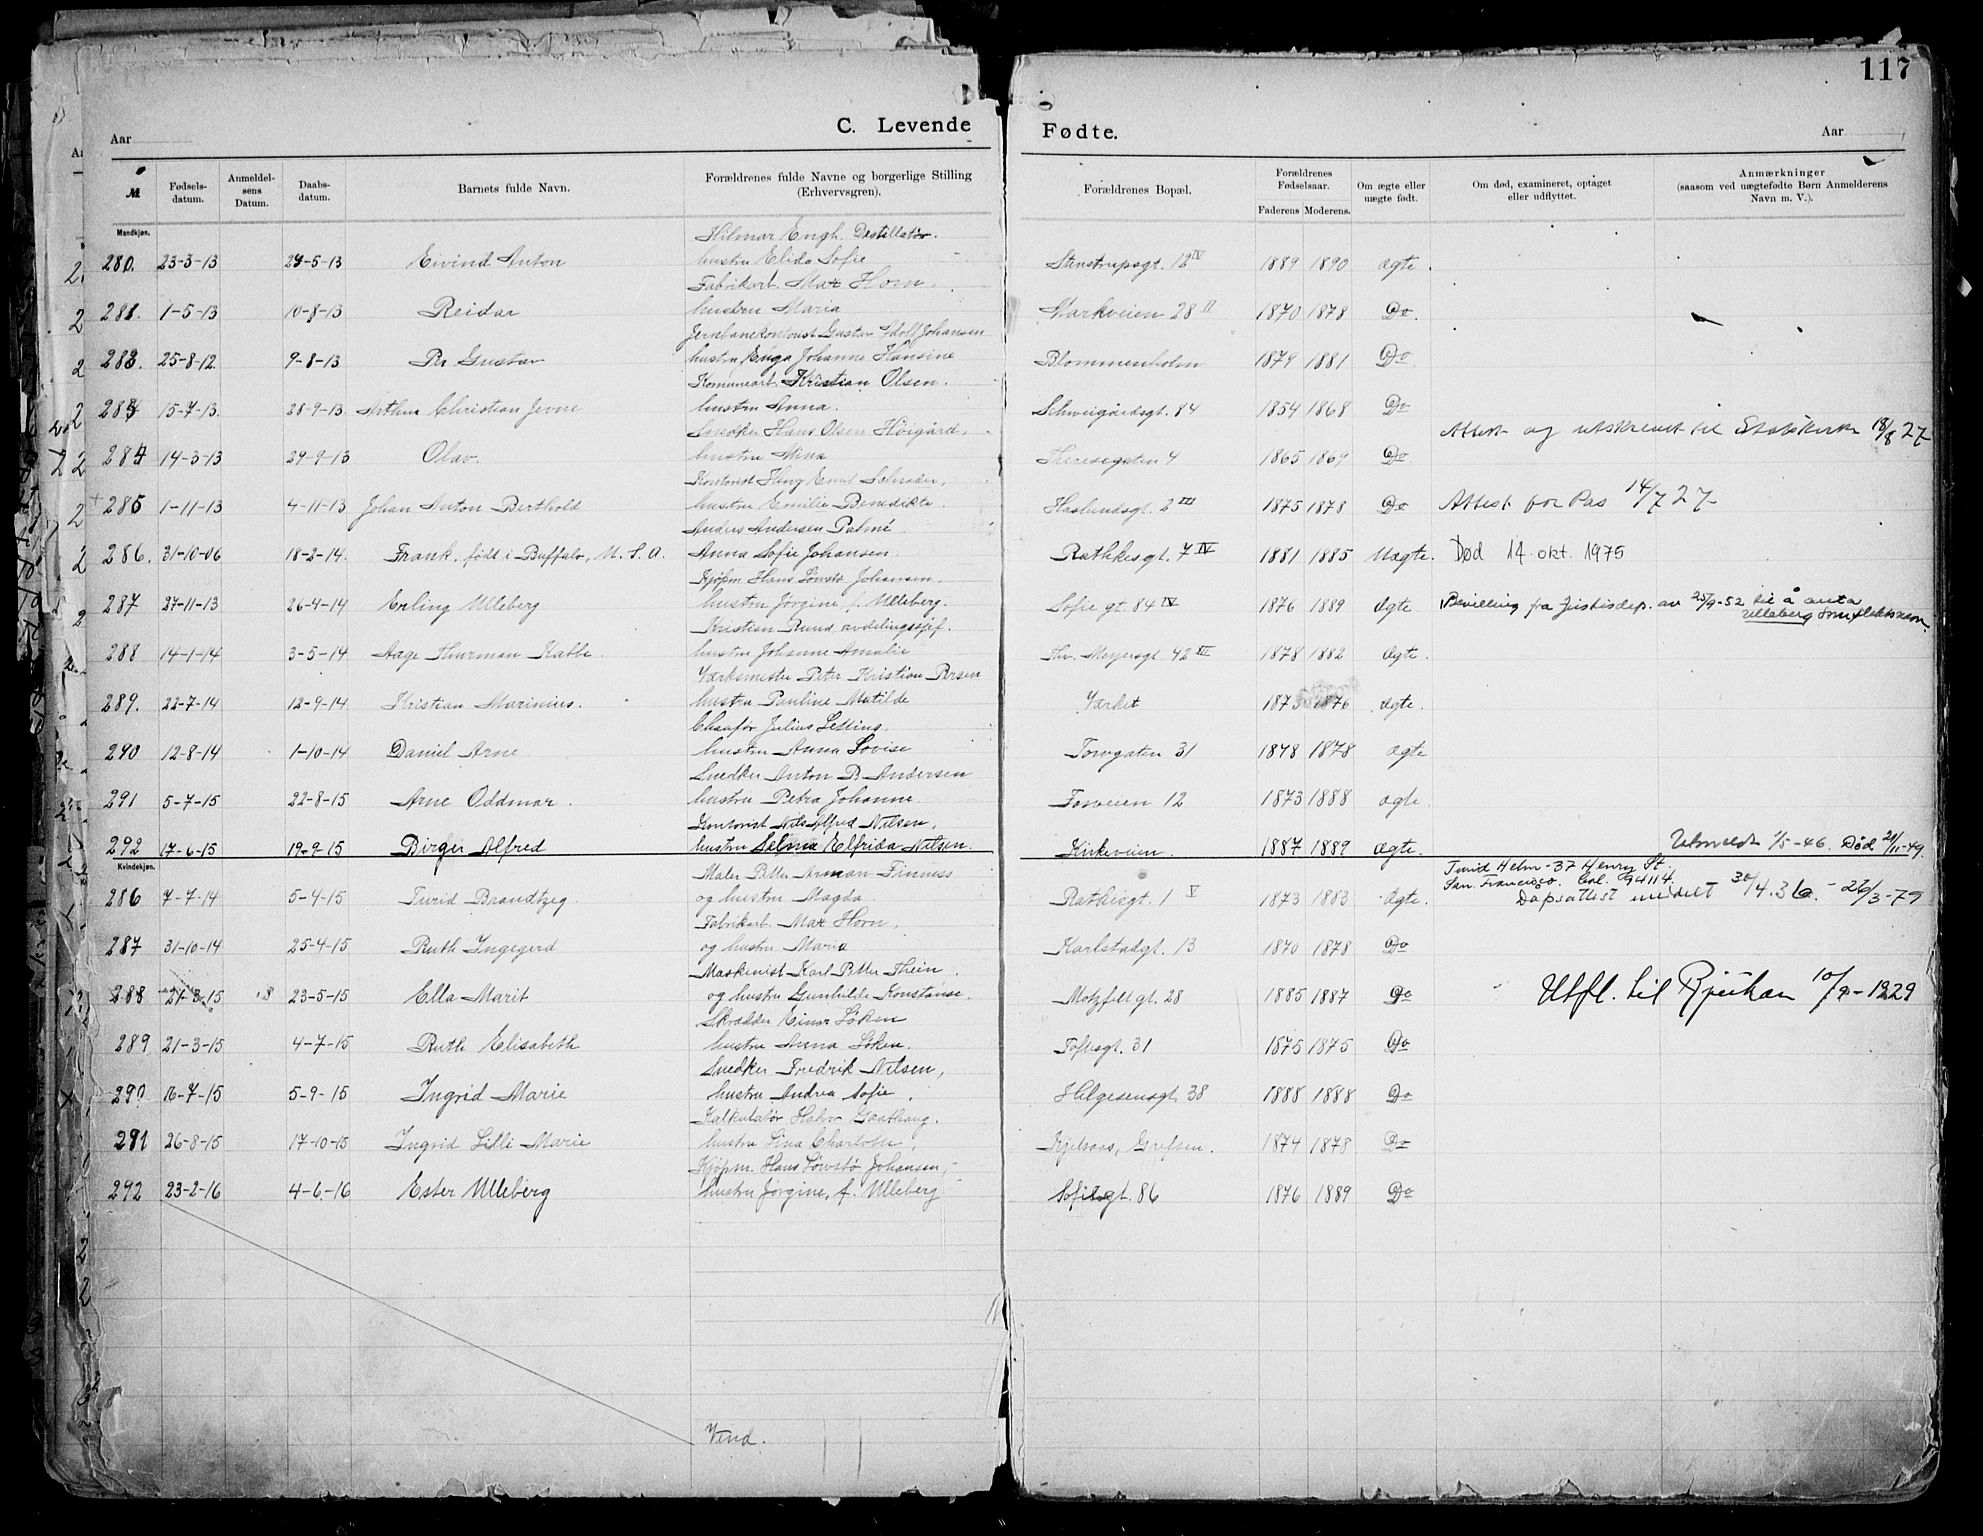 117
Aar C. Levende Fødte. Aar
№ Fødsels-datum. Anmeldel-sens Datum. Daabs-datum. Barnets fulde Navn. Forældrenes fulde Navne og borgerlige Stilling (Erhvervsgren). Forældrenes Bopæl. Forældrenes Fødselsaar. Faderens Moderens. Om ægte eller uægte født. Om død, examineret, optaget eller udflyttet. Anmærkninger (saasom ved uægtefødte Børn Anmelderens Navn m. V.).
Mandkjøn.
Hilmar Engh. Destillatør.
280. 23-3-13 24-5-13 Eivind Anton hustru Elida Sofie Stenstrupsgt. 12 IV 1889 1890 ægte.
Fabrikarb. Max Horn.
281. 1-5-13 10-8-13 Reidar hustru Maria Markveien 28 II 1870 1878 Do.
Jernbanekontorist Gustav Adolf Johansen
282. 25-8-12. 9-8-13 Per Gustav hustru Inga Johanne Hansine Blommenholm 1879 1881 Do
Komunearb. Kristian Olsen.
283 15-7-13. 28-9-13. Arthur Christian Jevne hustru Anna. Schweigaardsgt. 84 1854 1868 Do
Snedker Hans Olsen Höigård. Attest og utskrevet til Statskirken 18/8 27
284 14-3-13 29-9-13 Olav. hustru Mina Theresegaten 4 1865 1869 Do.
Kontorist Emil Schrøder,
+ 285 1-11-13 4-11-13 Johan Anton Berthold hustru Emilie Benedikte. Haslundsgt. 2 III 1875 1878 Do Attest for Pas 14/7 27
Anders Andersen Palmé
286. 31-10-06 18-2-14. Frank, født i Buffalo, U. S. A. Anna Sofie Johansen. Rathkesgt. 7 IV 1881 1885 Uægte. Død 14. okt. 1975
Kjøpm. Hans Løvstø Johansen.
287 27-11-13 26-4-14 Erling Ulleberg hustru Jørgine, f. Ulleberg. Sofie gt. 84 IV 1876 1889 Ægte Bevilling fra Justisdep. av 25/9-52 til å anta
Ulleberg som slektsnavn.
Kristian Rund avdelingssjef.
288 14-1-14 3-5-14 Aage Thurman hustru Johanne Amalie Thv. Meyersgt. 42 III 1878 1882 Ægte.
Værksmester Peter Kristian Persen
289. 22-7-14 12-9-14 Kristian Marinius. hustru Pauline Matilde Værket 1873 1876 Ægte.
Chaufør Julius Letting.
290 12-8-14 1-10-14 Daniel Arne hustru Anna Lovise Torvgaten 31 1878 1878 Ægte
Snedker Anton B Andersen
291 5-7-15 22-8-15 Arne Oddmar. hustru Petra Johanne Forveien 12 1873 1888 ægte.
Kontorist Nils Alfred Nilsen,
292 17-6-15 19-9-15 Birger Alfred hustru Selma Elfrida Nilsen. Kirkeveien. 1887 1889 Ægte. Utmeldt 1/5-46. Død 21/11-49.
Kvindekjøn.
Maler Petter Arman Finness Turid Helm - 37 Henry St.
San. Francisco. Cal. 94114.
286 7-7-14 5-4-15 Turid Brandtzeg og hustru Magda. Rathkesgt. 1 V 1873 1883 Ægte. Dåpsattest utmeldt 30/4.36. - 26/3-79
Fabrikarb. Max Horn,
287 31-10-14 25-4-15 Ruth Ingegerd og hustru Maria Karlstadgt. 13 1870 1878 Do
Maskinist Karl Petter Thein.
288 21-3-15 23-5-15 Ella Marit og hustru Gunhilde Konstanse. Motzfeldtgt. 28 1885 1887 Do Utfl. til Rjukan 10/9-1929
Skrædder Einar Løken
289 21-3-15 4-7-15 Ruth Elisabeth hustru Anna Løken. Toftesgt. 31 1875 1875 Do
Snedker Fredrik Nilsen,
290 16-7-15 5-9-15 Ingrid Marie hustru Andrea Sofie. Helgesensgt. 38 1888 1888 Do
Kalkulatør Halvor Gaathaug.
291 26-8-15 17-10-15 Ingrid Lilli Marie hustru Lina Charlotte Kjelsaas, Grefsen. 1874 1878 Do
Kjøpm. Hans Løvstø Johansen,
292 23-2-16 4-6-16 Ester Ulleberg hustru Jørgine, f. Ulleberg Sofiesgt. 86 1876 1889 Do
Vend.